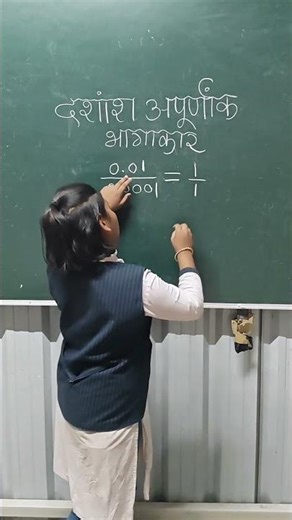 दशांश अपूर्णांक
भागाकार
0.01 = 1
001 1